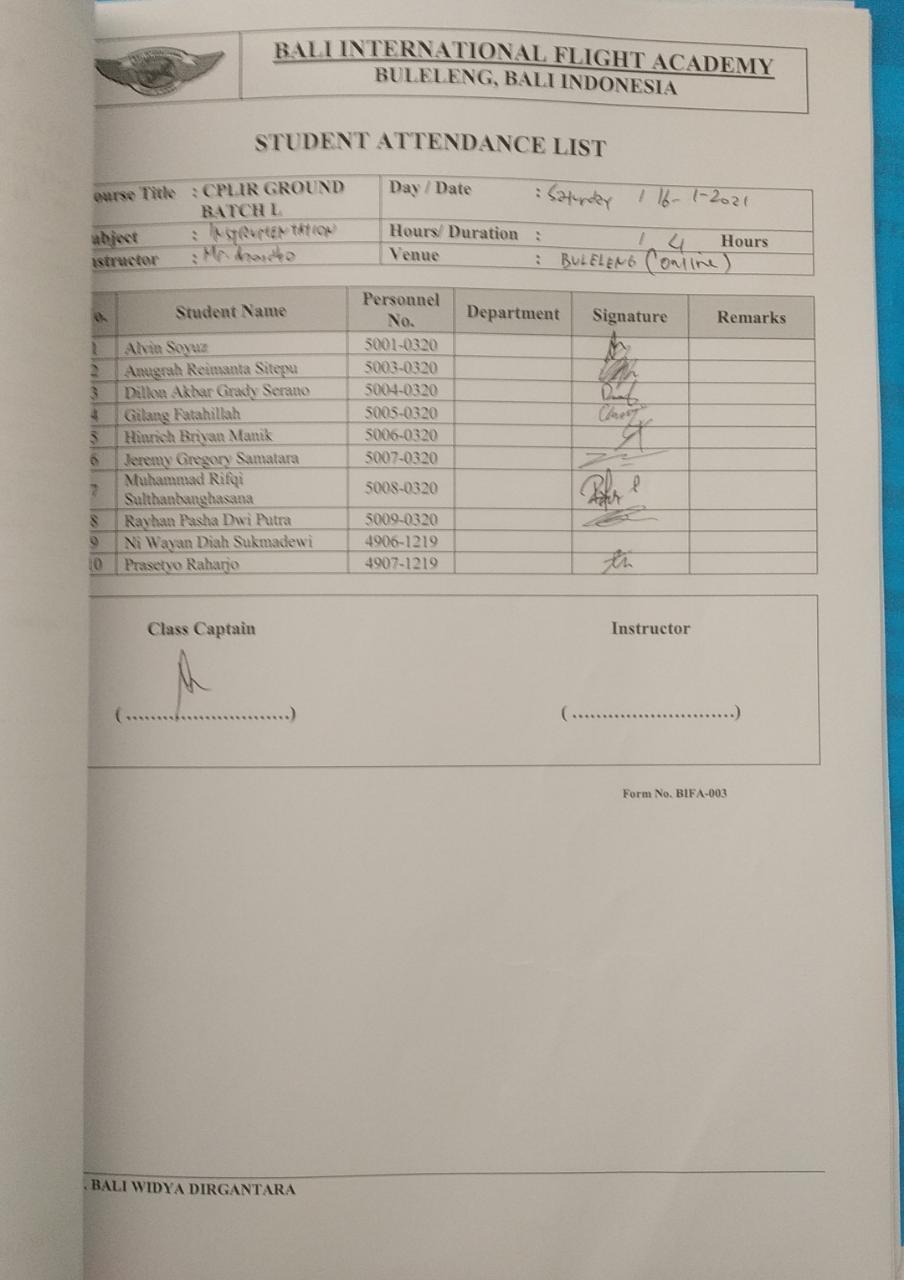 BALI INTERNATIONAL FLIGHT ACADEMY
BULELENG, BALI INDONESIA
STUDENT ATTENDANCE LIST
ourse Title : CPLIR GROUND BATCH L Day / Date : Saturday / 16-1-2021
ubject : INSTRUMENTATION Hours/ Duration : / 4 Hours
nstructor : Mr. Venue : BULELENG (online)
o. Student Name Personnel No. Department Signature Remarks
1 Alvin Soyuz 5001-0320
2 Anugrah Reimanta Sitepu 5003-0320
3 Dillon Akbar Grady Serano 5004-0320
4 Gilang Fatahillah 5005-0320
5 Hinrich Briyan Manik 5006-0320
6 Jeremy Gregory Samatara 5007-0320
7 Muhammad Rifqi Sulthanbanghasana 5008-0320
8 Rayhan Pasha Dwi Putra 5009-0320
9 Ni Wayan Diah Sukmadewi 4906-1219
10 Prasetyo Raharjo 4907-1219
Class Captain Instructor
(............................) (............................)
Form No. BIFA-003
. BALI WIDYA DIRGANTARA